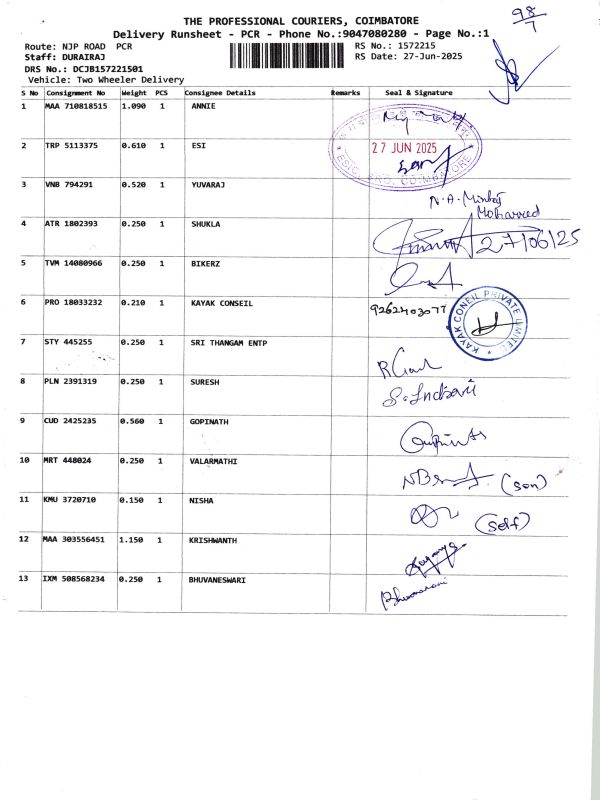 98/7
THE PROFESSIONAL COURIERS, COIMBATORE
Delivery Runsheet - PCR - Phone No.:9047080280 - Page No.:1
Route: NJP ROAD PCR RS No.: 1572215
Staff: DURAIRAJ RS Date: 27-Jun-2025
DRS No.: DCJB157221501
Vehicle: Two Wheeler Delivery
S No Consignment No Weight PCS Consignee Details Remarks Seal & Signature
1 MAA 710818515 1.090 1 ANNIE
2 TRP 5113375 0.610 1 ESI 27 JUN 2025
COIMBATORE
3 VNB 794291 0.520 1 YUVARAJ N.A. Minhaj
Mohammed
4 ATR 1802393 0.250 1 SHUKLA 27/06/25
5 TVM 14080966 0.250 1 BIKERZ
6 PRO 18033232 0.210 1 KAYAK CONSEIL 9262403077 KAYAK CONEIL PRIVATE LIMITED
7 STY 445255 0.250 1 SRI THANGAM ENTP
8 PLN 2391319 0.250 1 SURESH
9 CUD 2425235 0.560 1 GOPINATH
10 MRT 448024 0.250 1 VALARMATHI (son)
11 KMU 3720710 0.150 1 NISHA (self)
12 MAA 303556451 1.150 1 KRISHWANTH
13 IXM 508568234 0.250 1 BHUVANESWARI